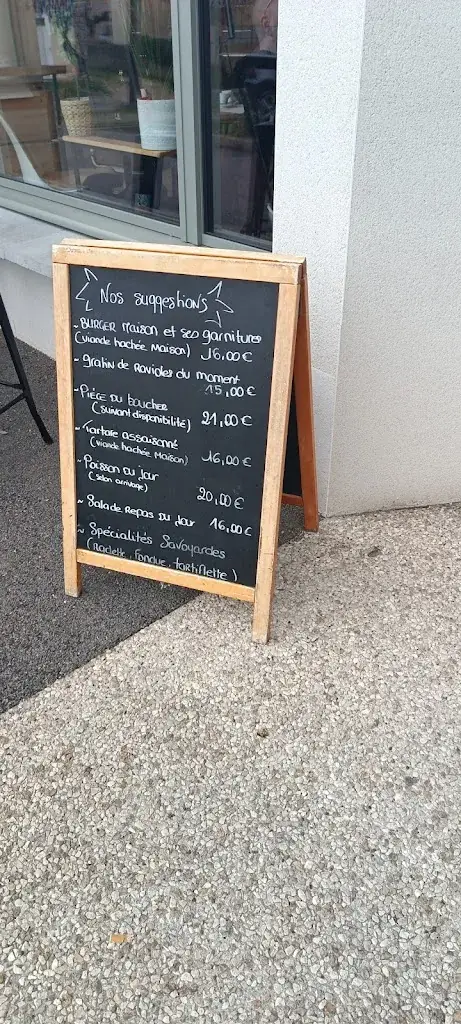 Nos suggestions
~ BURGER Maison et ses garnitures
(viande hachée Maison) 16,00 €
~ gratin de Ravioles du moment
15,00 €
~ Pièce du boucher
(suivant disponibilité) 21,00 €
~ Tartare assaisonné
(viande hachée Maison) 16,00 €
~ Poisson du Jour
(selon arrivage) 20,00 €
~ Salade Repas du Jour 16,00 €
~ Spécialités Savoyardes
(Raclette, Fondue, tartiflette)